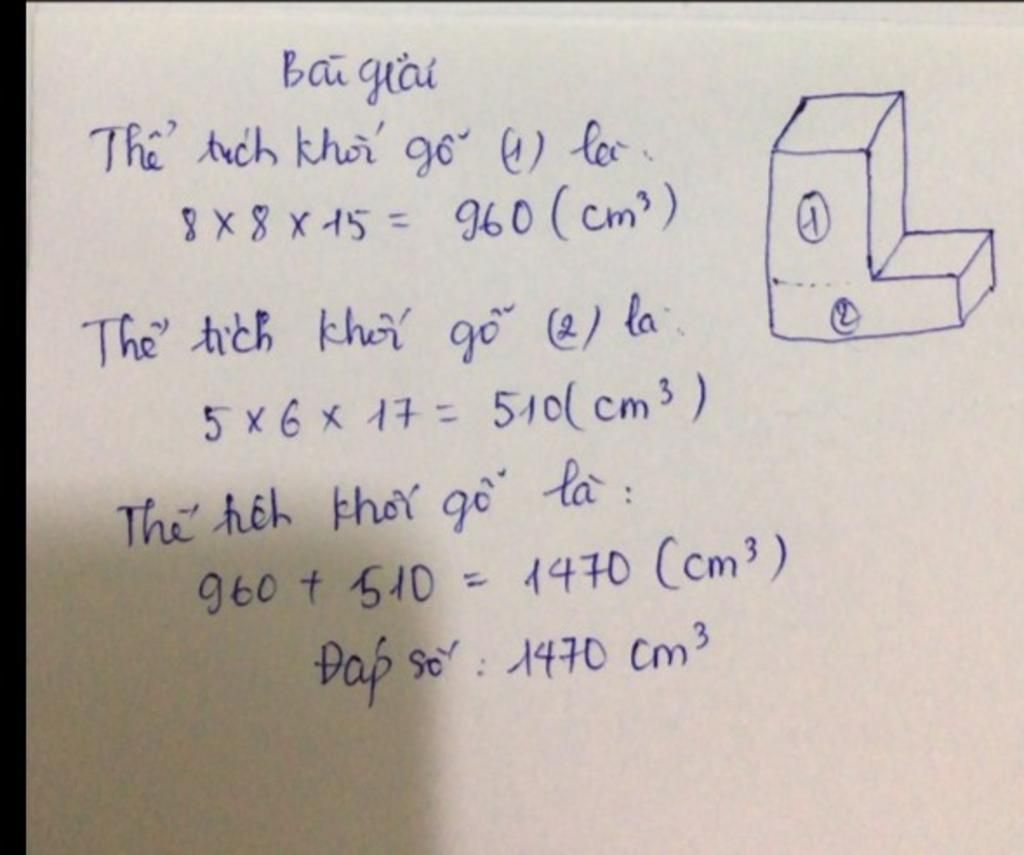 Bài giải
Thể tích khối gỗ (1) là.
8 x 8 x 15 = 960 (cm³)
Thể tích khối gỗ (2) là:
5 x 6 x 17 = 510 (cm³)
Thể tích khối gỗ là:
960 + 510 = 1470 (cm³)
Đáp số: 1470 cm³
1
2